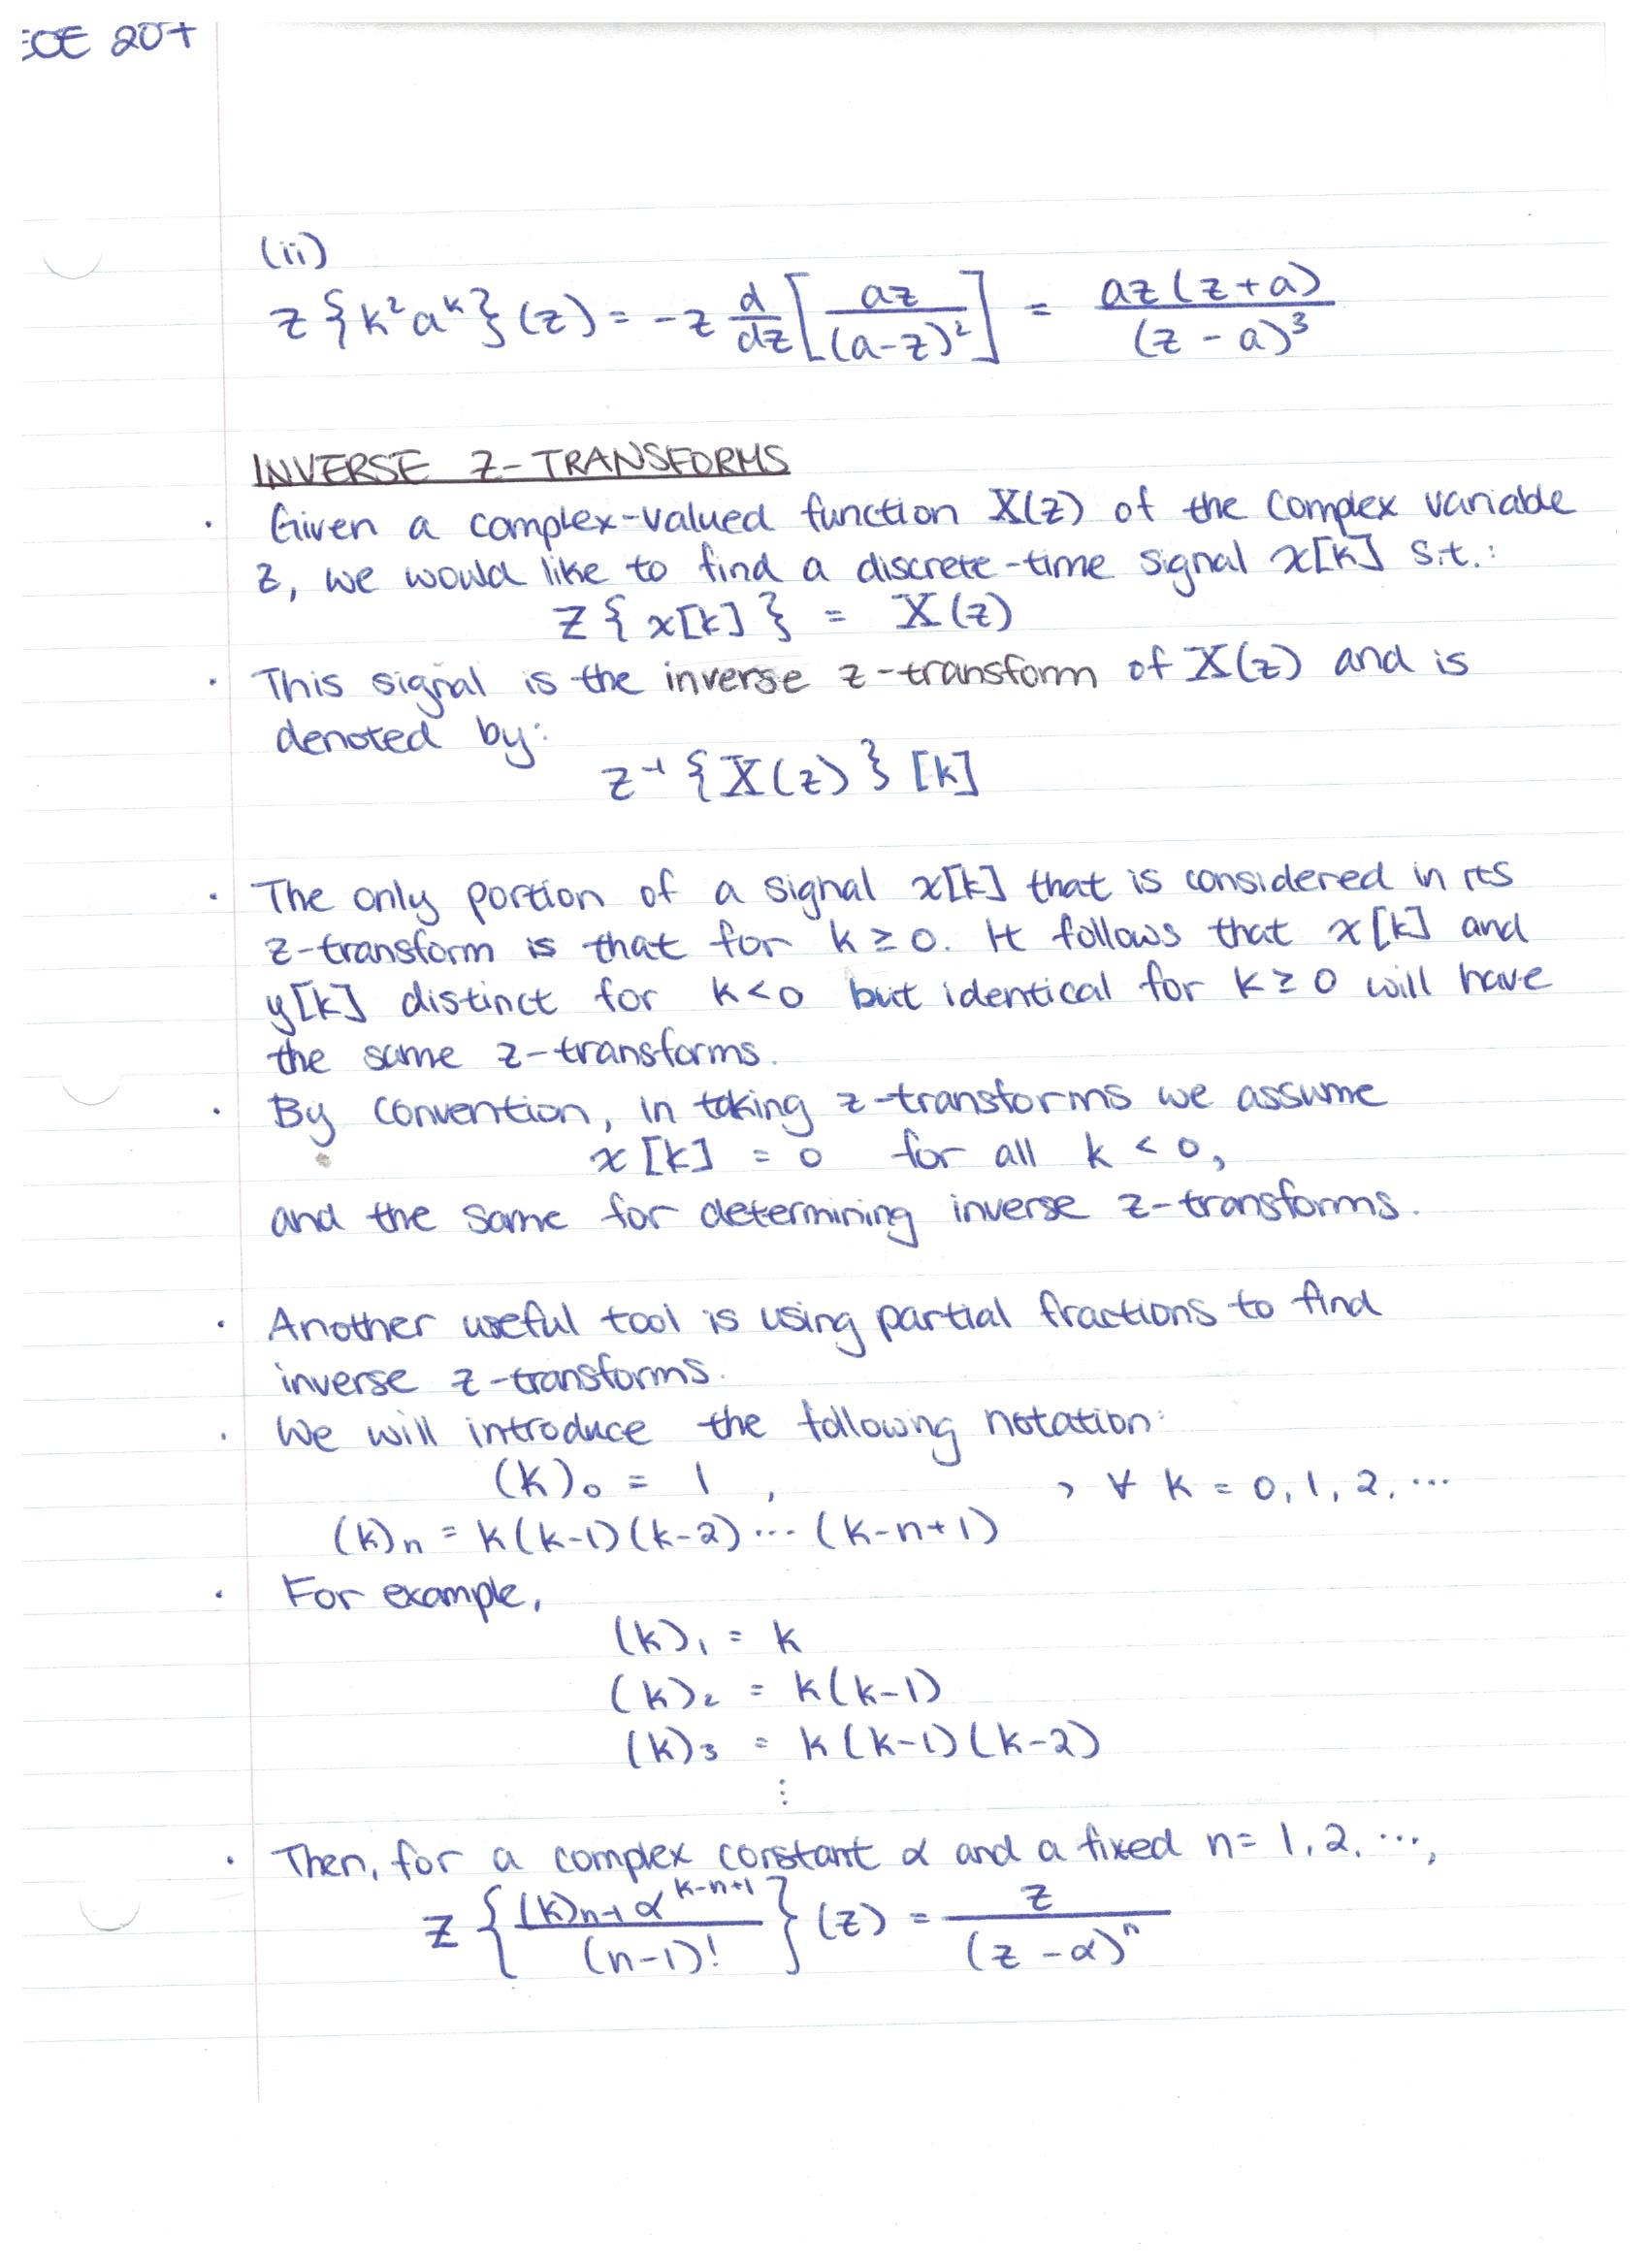 ECE 207
(ii)
z{k²aᵏ}(z) = -z d/dz [az/(a-z)²] = az(z+a)/(z-a)³
INVERSE Z-TRANSFORMS
· Given a complex-valued function X(z) of the complex variable
z, we would like to find a discrete-time signal x[k] s.t.:
Z{x[k]} = X(z)
· This signal is the inverse z-transform of X(z) and is
denoted by:
z⁻¹{X(z)}[k]
· The only portion of a signal x[k] that is considered in its
z-transform is that for k ≥ 0. It follows that x[k] and
y[k] distinct for k<0 but identical for k ≥ 0 will have
the same z-transforms.
· By convention, in taking z-transforms we assume
x[k] = 0 for all k < 0,
and the same for determining inverse z-transforms.
· Another useful tool is using partial fractions to find
inverse z-transforms.
· We will introduce the following notation:
(k)₀ = 1 , , ∀ k = 0, 1, 2, ...
(k)ₙ = k(k-1)(k-2)...(k-n+1)
· For example,
(k)₁ = k
(k)₂ = k(k-1)
(k)₃ = k(k-1)(k-2)
⋮
· Then, for a complex constant α and a fixed n= 1, 2, ...,
Z{(k)ₙ₋₁ α^(k-n+1)/(n-1)!}(z) = z/(z-α)ⁿ